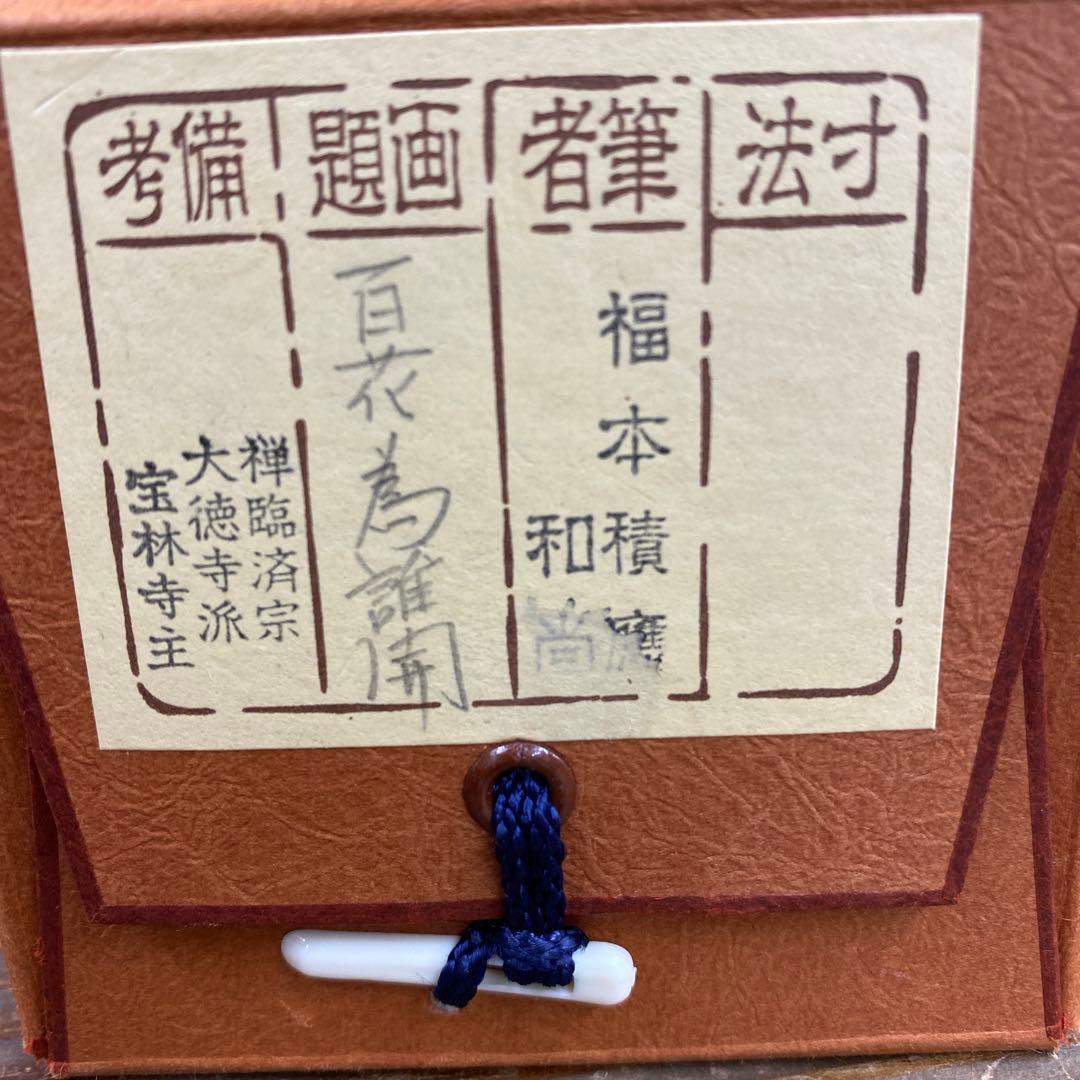 寸法
筆者
福本積應
和尚
画題
百花為誰開
備考
禅臨済宗
大徳寺派
宝林寺主